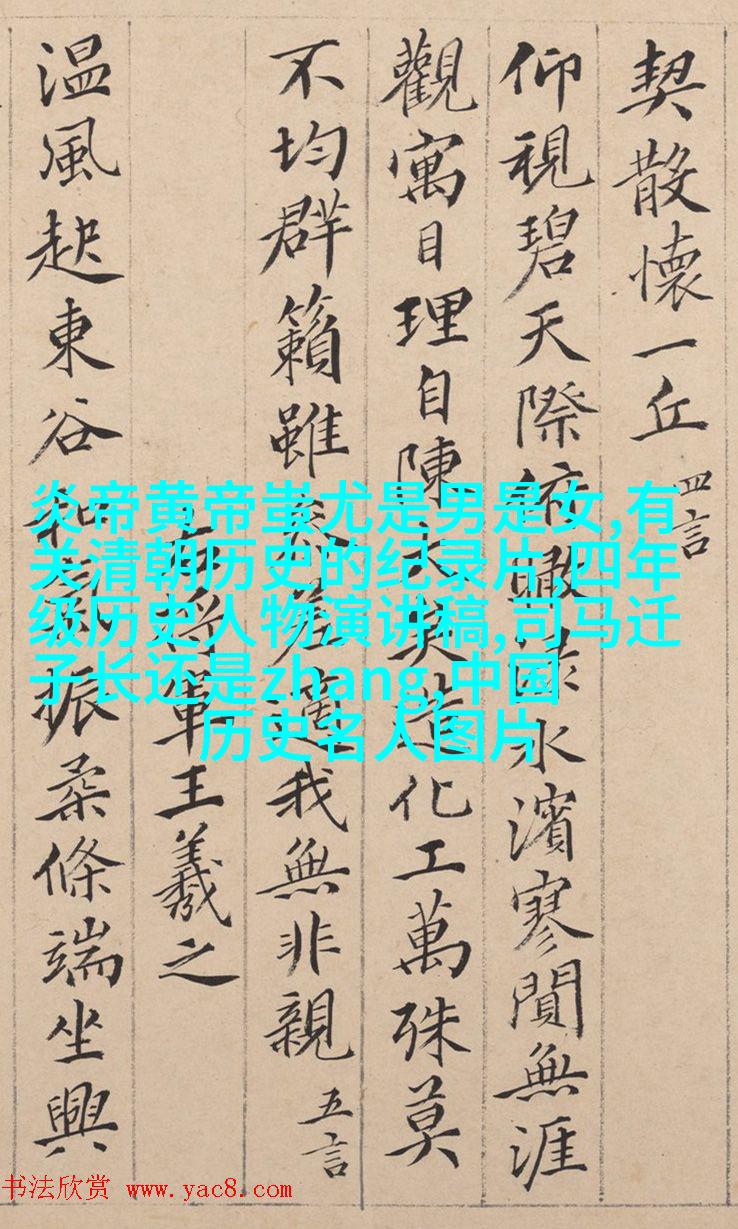 契散懷一丘 四言
仰視碧天際俯瞰淥水濱寥閴無涯
觀寓目理自陳大矣造化工萬殊莫
不均群籟雖參差適我無非親 五言
右將軍王羲之
温風起東谷和氣振柔條端坐興
炎帝黄帝蚩尤是男是女,有
关清朝历史的纪录片,四年
级历史人物演讲稿,司马迁
子长还是zhang,中国
历史名人图片
书法欣赏 www.yac8.com